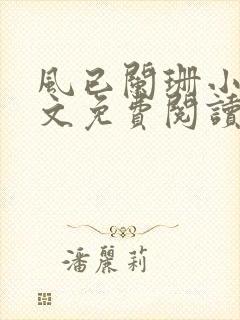 風已闌珊小
文免費閱讀
潘麗莉